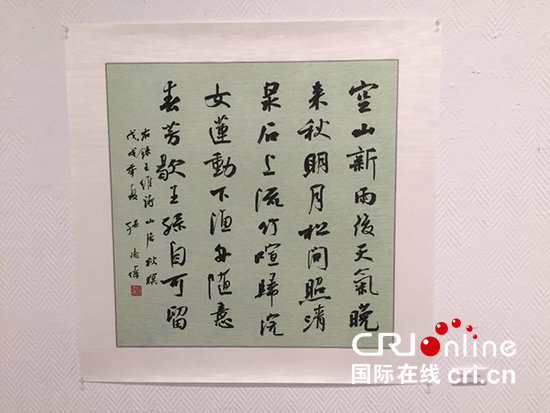 空山新雨後天氣晚
来秋明月松间照清
泉石上流竹喧歸浣
女蓮動下漁舟随意
春芳歇王孫自可留
右錄王維詩山居秋暝
戊戌夏
CRIonline
国际在线 cri.cn